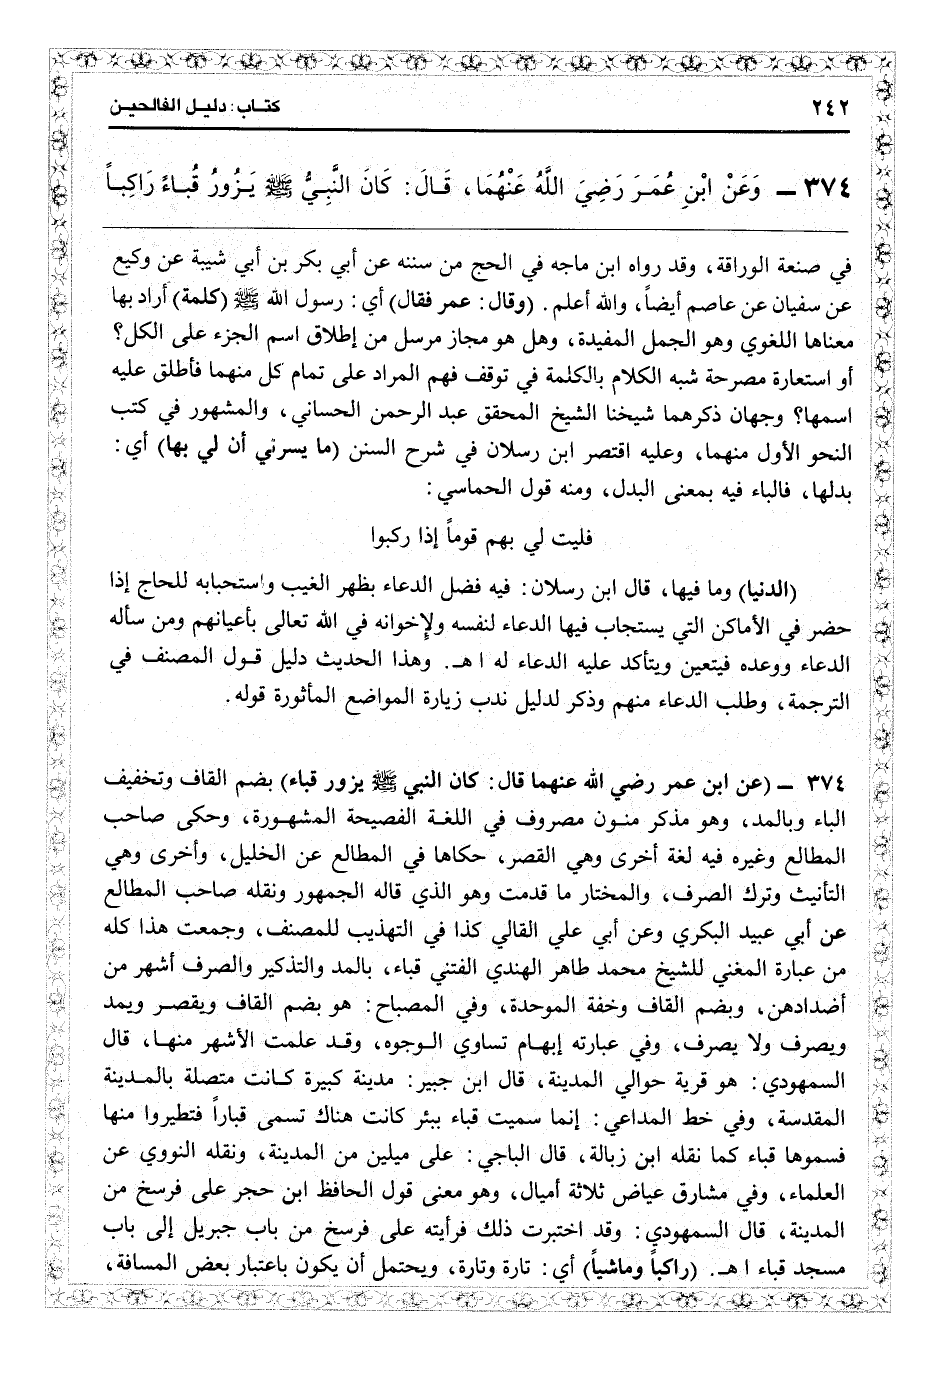 ٢٤٢ كتاب: دليل الفالحين
٣٧٤ ـ وَعَنْ ابْنِ عُمَرَ رَضِيَ اللَّهُ عَنْهُمَا، قَالَ: كَانَ النَّبِيُّ ﷺ يَزُورُ قُبَاءً رَاكِباً
في صنعة الوراقة، وقد رواه ابن ماجه في الحج من سننه عن أبي بكر بن أبي شيبة عن وكيع
عن سفيان عن عاصم أيضاً، والله أعلم. (وقال: عمر فقال) أي: رسول الله ﷺ (كلمة) أراد بها
معناها اللغوي وهو الجمل المفيدة، وهل هو مجاز مرسل من إطلاق اسم الجزء على الكل؟
أو استعارة مصرحة شبه الكلام بالكلمة في توقف فهم المراد على تمام كل منهما فأطلق عليه
اسمها؟ وجهان ذكرهما شيخنا الشيخ المحقق عبد الرحمن الحساني، والمشهور في كتب
النحو الأول منهما، وعليه اقتصر ابن رسلان في شرح السنن (ما يسرني أن لي بها) أي:
بدلها، فالباء فيه بمعنى البدل، ومنه قول الحماسي:
فليت لي بهم قوماً إذا ركبوا
(الدنيا) وما فيها، قال ابن رسلان: فيه فضل الدعاء بظهر الغيب واستحبابه للحاج إذا
حضر في الأماكن التي يستجاب فيها الدعاء لنفسه ولإخوانه في الله تعالى بأعيانهم ومن سأله
الدعاء ووعده فيتعين ويتأكد عليه الدعاء له ا هـ. وهذا الحديث دليل قول المصنف في
الترجمة، وطلب الدعاء منهم وذكر لدليل ندب زيارة المواضع المأثورة قوله.
٣٧٤ ـ (عن ابن عمر رضي الله عنهما قال: كان النبي ﷺ يزور قباء) بضم القاف وتخفيف
الباء وبالمد، وهو مذكر منون مصروف في اللغة الفصيحة المشهورة، وحكى صاحب
المطالع وغيره فيه لغة أخرى وهي القصر، حكاها في المطالع عن الخليل، وأخرى وهي
التأنيث وترك الصرف، والمختار ما قدمت وهو الذي قاله الجمهور ونقله صاحب المطالع
عن أبي عبيد البكري وعن أبي علي القالي كذا في التهذيب للمصنف، وجمعت هذا كله
من عبارة المغني للشيخ محمد طاهر الهندي الفتني قباء، بالمد والتذكير والصرف أشهر من
أضدادهن، وبضم القاف وخفة الموحدة، وفي المصباح: هو بضم القاف ويقصر ويمد
ويصرف ولا يصرف، وفي عبارته إبهام تساوي الوجوه، وقد علمت الأشهر منها، قال
السمهودي: هو قرية حوالي المدينة، قال ابن جبير: مدينة كبيرة كانت متصلة بالمدينة
المقدسة، وفي خط المداعي: إنما سميت قباء ببئر كانت هناك تسمى قباراً فتطيروا منها
فسموها قباء كما نقله ابن زبالة، قال الباجي: على ميلين من المدينة، ونقله النووي عن
العلماء، وفي مشارق عياض ثلاثة أميال، وهو معنى قول الحافظ ابن حجر على فرسخ من
المدينة، قال السمهودي: وقد اختبرت ذلك فرأيته على فرسخ من باب جبريل إلى باب
مسجد قباء ا هـ. (راكباً وماشياً) أي: تارة وتارة، ويحتمل أن يكون باعتبار بعض المسافة،